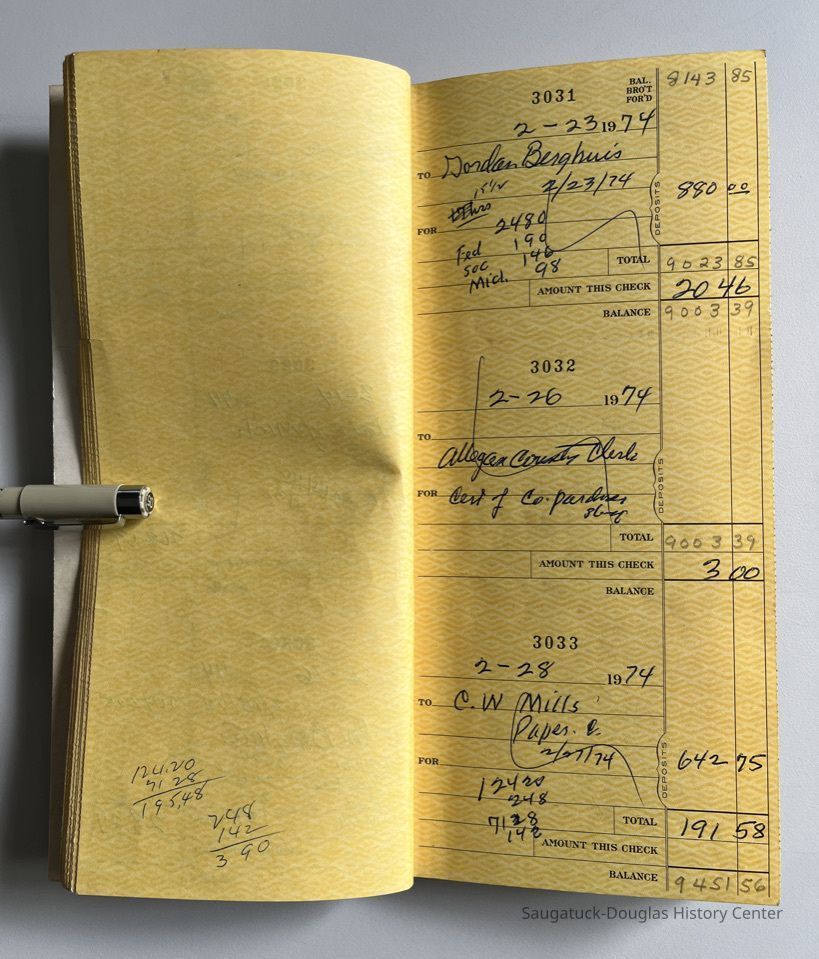 124.20
71 28
195,48
248
142
3 90
3031
BAL.
BRO'T
FOR'D
8143 85
2 - 23 1974
TO Gordan Berghuis
2/23/74
DEPOSITS 880 00
hrs
FOR 2480
Fed 190
Soc 146
Mich. 98
TOTAL 9023 85
AMOUNT THIS CHECK 20 46
BALANCE 9003 39
3032
2- 26 1974
TO
Allegan County Clerk
DEPOSITS
FOR Cert of Co-pardners
TOTAL 9003 39
AMOUNT THIS CHECK 3 00
BALANCE
3033
2 - 28 1974
TO C. W Mills
Paper. C.
2/27/74
DEPOSITS 642 75
FOR
124 20
248
71 28
142
TOTAL 191 58
AMOUNT THIS CHECK
BALANCE 9451 56
Saugatuck-Douglas History Center